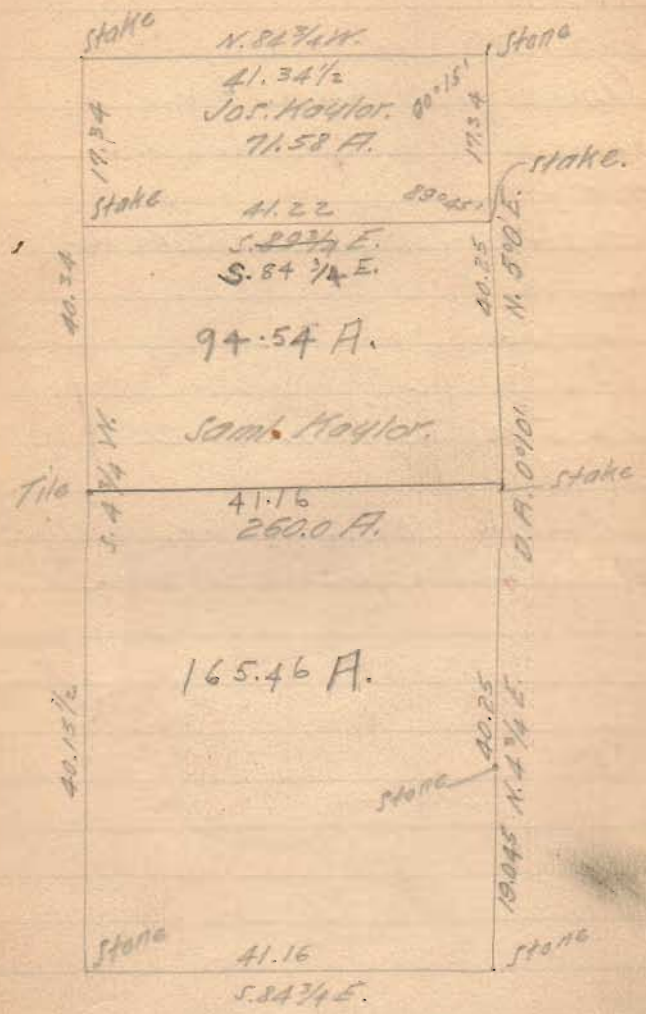 Stake
N. 84 3/4 W.
Stone
41.34 1/2
Jos. Kaylor.
90°15'
71.58 A.
17.34
17.34
stake.
Stake
41.22
89°45'
S. 89 3/4 E.
S. 84 3/4 E.
40.34
40.25
N. 5°0' E.
94.54 A.
Saml. Kaylor.
S. 4 3/4 W.
D.A. 0°10'
Tile
41.16
stake
260.0 A.
165.46 A.
40.15 1/2
40.25
N. 4 3/4 E.
stone
19.045
Stone
41.16
Stone
S. 84 3/4 E.